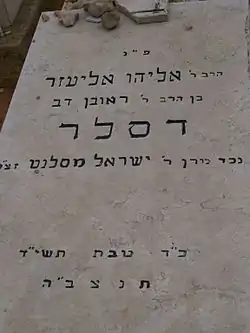 פ״נ
הרב ר׳ אליהו אליעזר
בן הרב ר׳ ראובן דב
דסלר
נכד מרן ר׳ ישראל מסלנט זצ״ל
כ״ד טבת תשי״ד
ת נ צ ב ״ ה